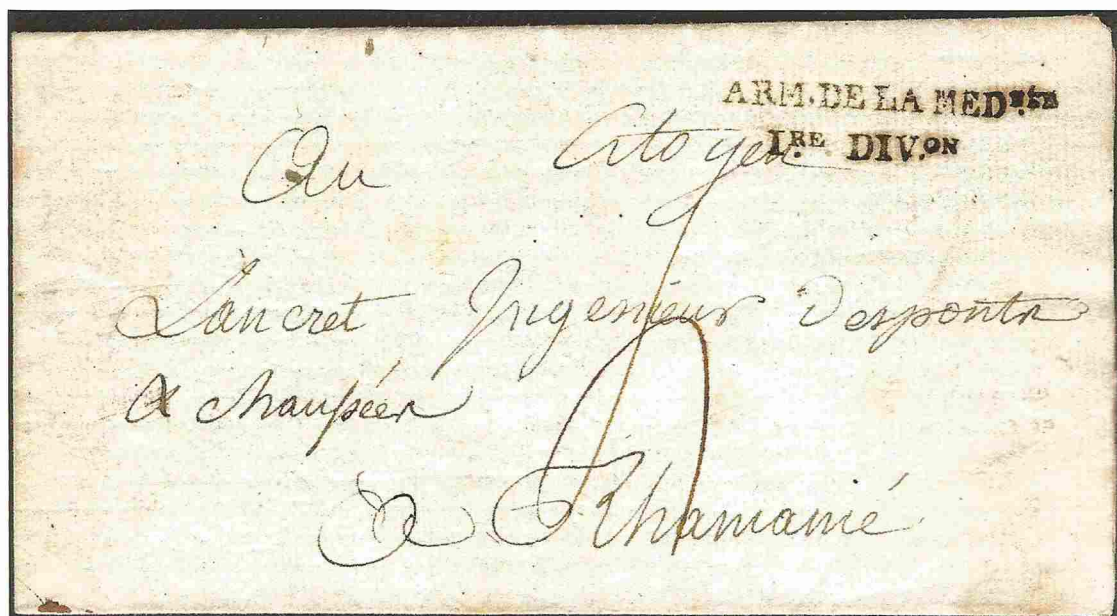 ARM. DE LA MED.RÉE
I.RE DIV.ON
Au Citoyen
Lancret Ingenieur Des ponts
& chaussées
a Rhamanié